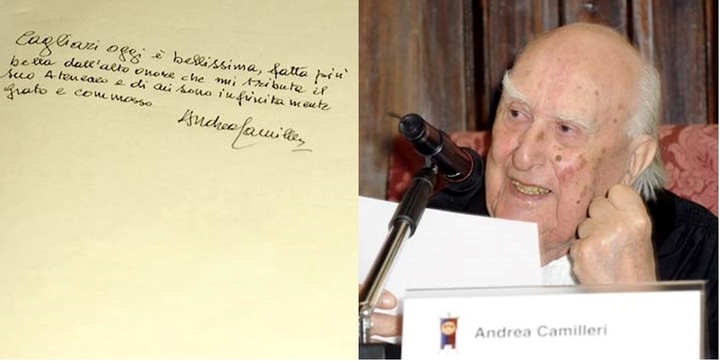 Cagliari oggi è bellissima, fatta più
bella dall'alto onore che mi tributa il
suo Ateneo e di cui sono infinitamente
grato e commosso
Andrea Camilleri
Andrea Camilleri